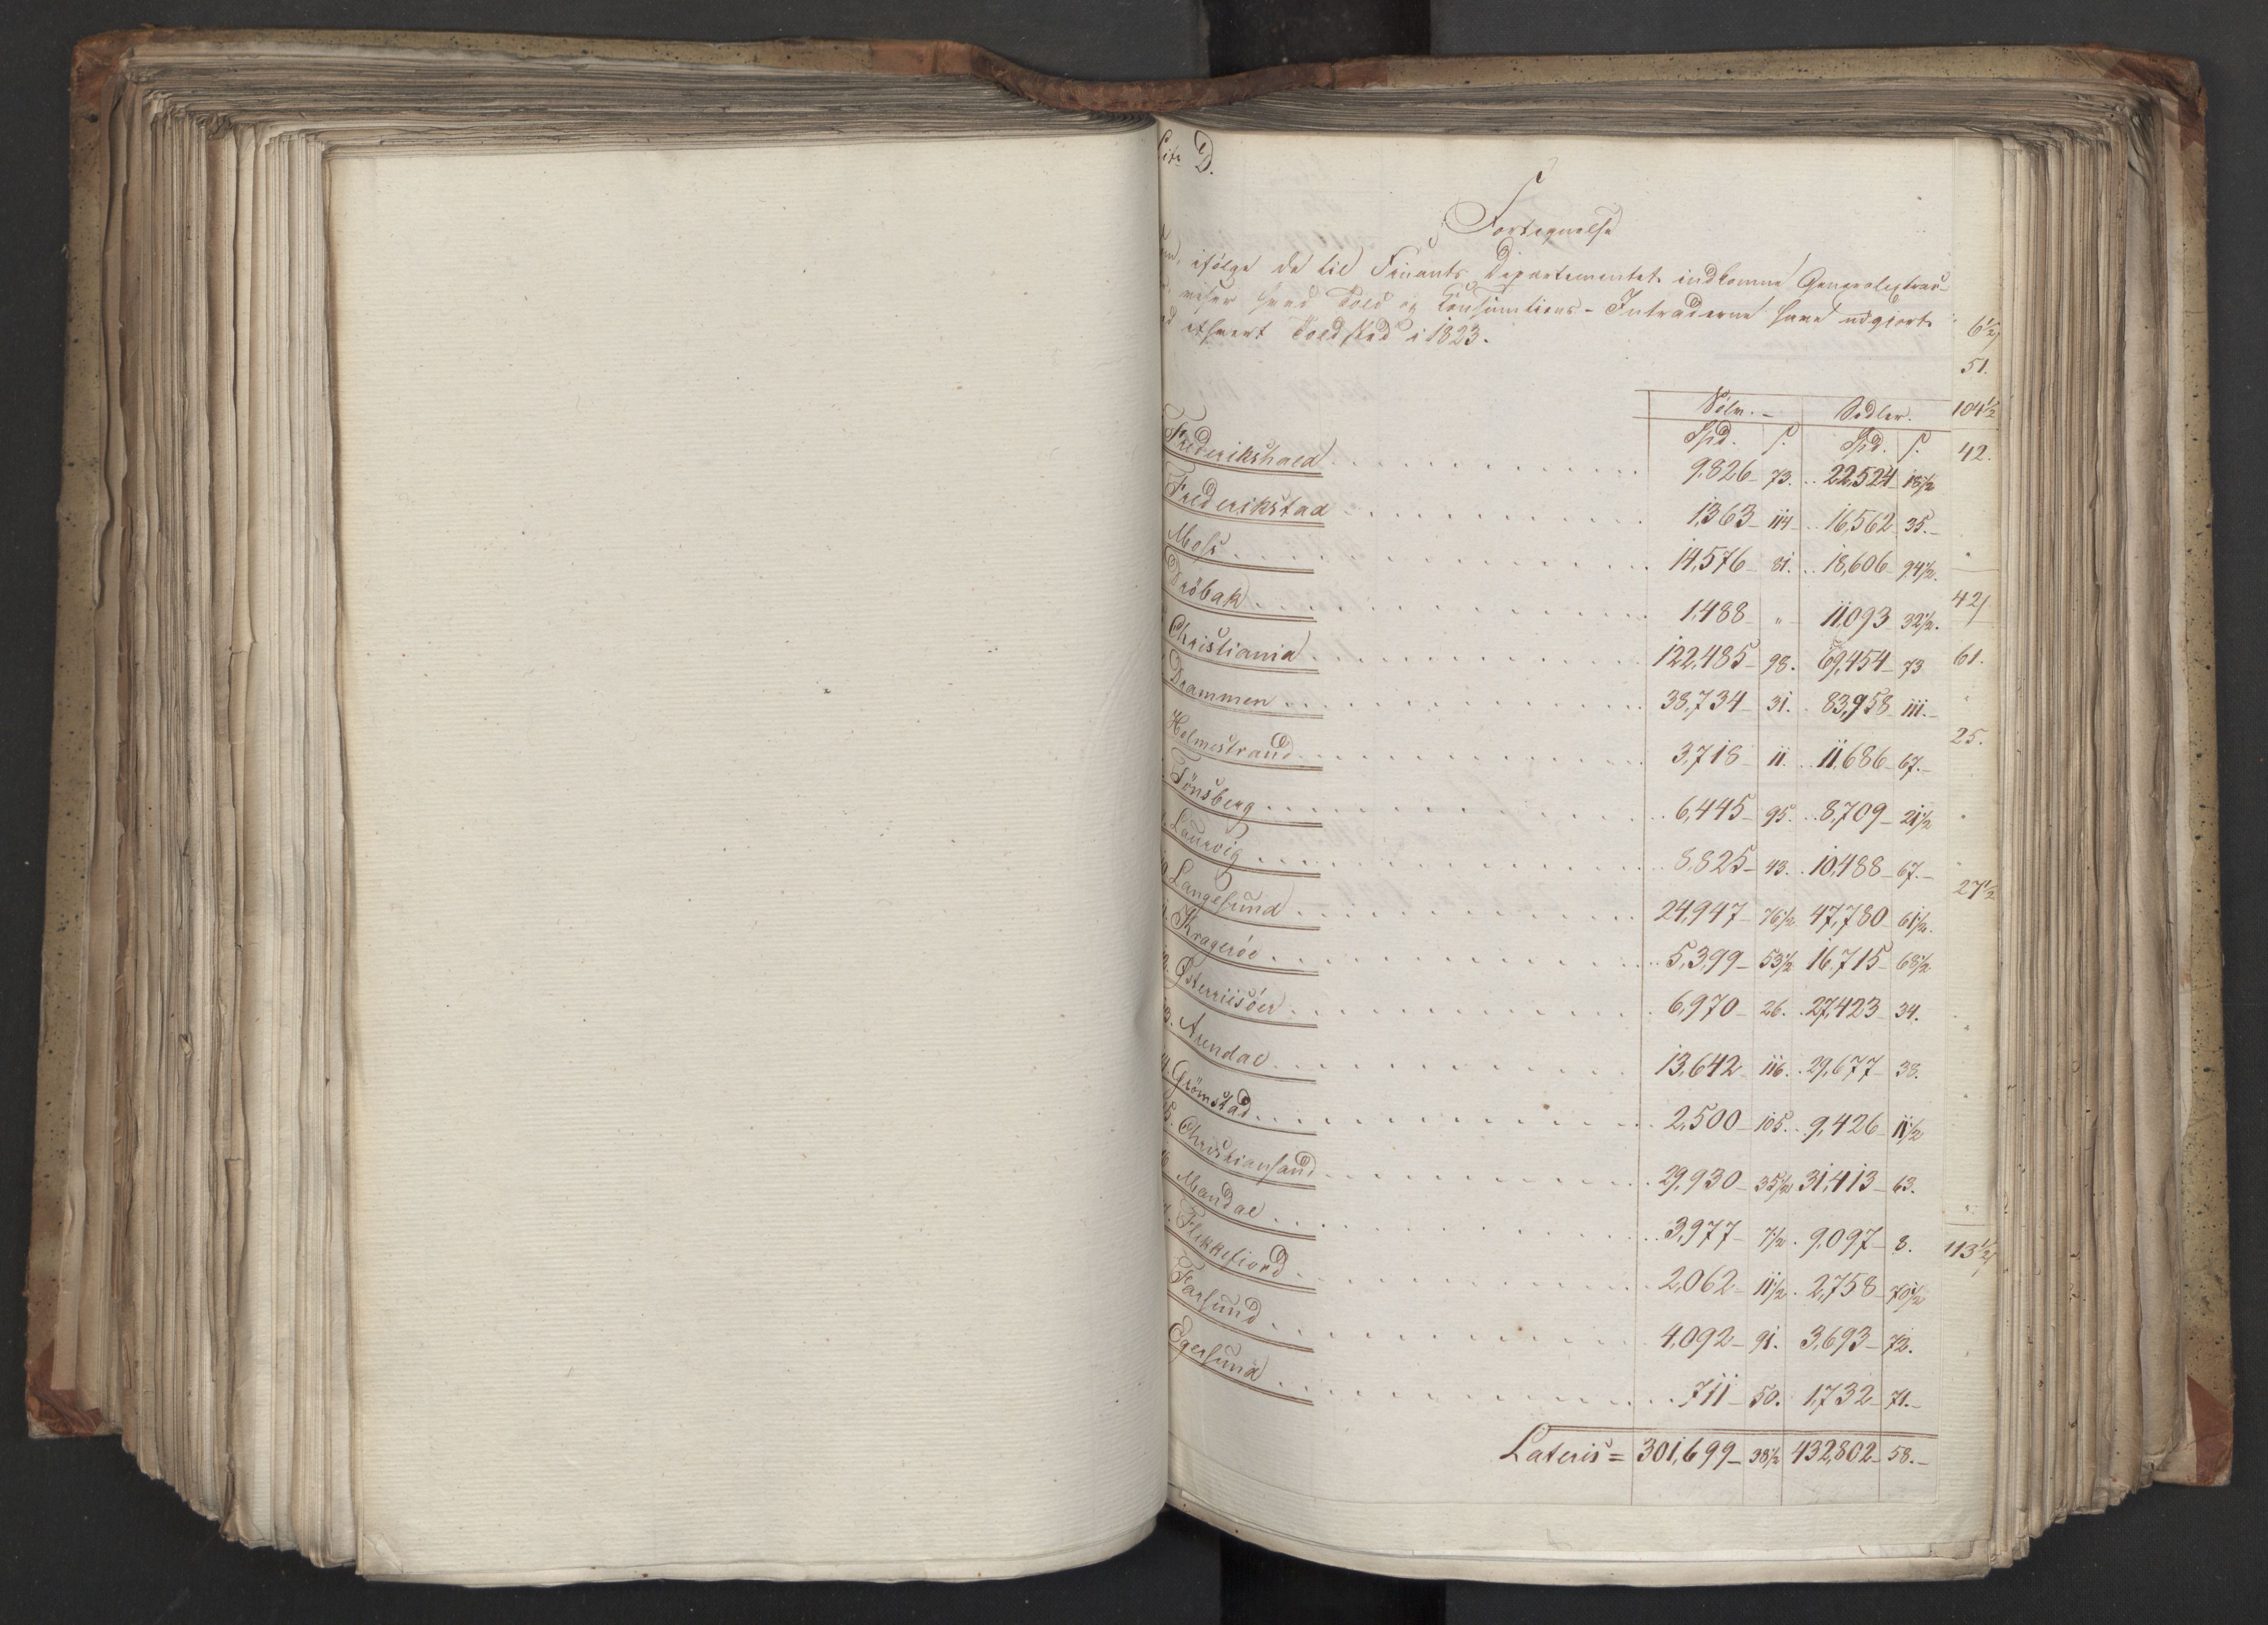 Litr D.
Fortegnelse
ifølge de til Finants Departementet indkomne Generalextrac-
viser hvad Told og Consumtions-Intraderne have udgiort
ethvert Toldsted i 1823.
Sølv. Sedler.
Spd. s. Spd. s.
Frederikshald 9,826 73. 22,524 18½
Frederikstad 1,363 114 16,562 35.
Moss 14,576 81. 18,606 94½.
Dröbak 1,488 " 11,093 32½.
Christiania 122,485 98. 69,454 73
Drammen 38,734 31. 83,958 111.
Holmestrand 3,718 11. 11,686 67.
Tönsberg 6,445 95. 8,709 21½
Laurvig 8,825 43. 10,488 67.
Langesund 24,947 76½ 47,780 61½.
Kragerøe 5,399 53½ 16,715 68½
Østerriisöer 6,970 26. 27,423 34.
Arendal 13,642 116. 29,677 38.
Grömstad 2,500 105. 9,426 11½
Christiansand 29,930 35½ 31,413 63.
Mandal 3,977 7½. 9,097 8.
Flekkefiord 2,062 11½. 2,758 70½
Farsund 4,092 91. 3,693 72.
Egersund 711 50. 1,732 71.
Lateris = 301,699 38½ 432,802 58.
6½
51.
104½
42.
42
61.
25.
27½
113½